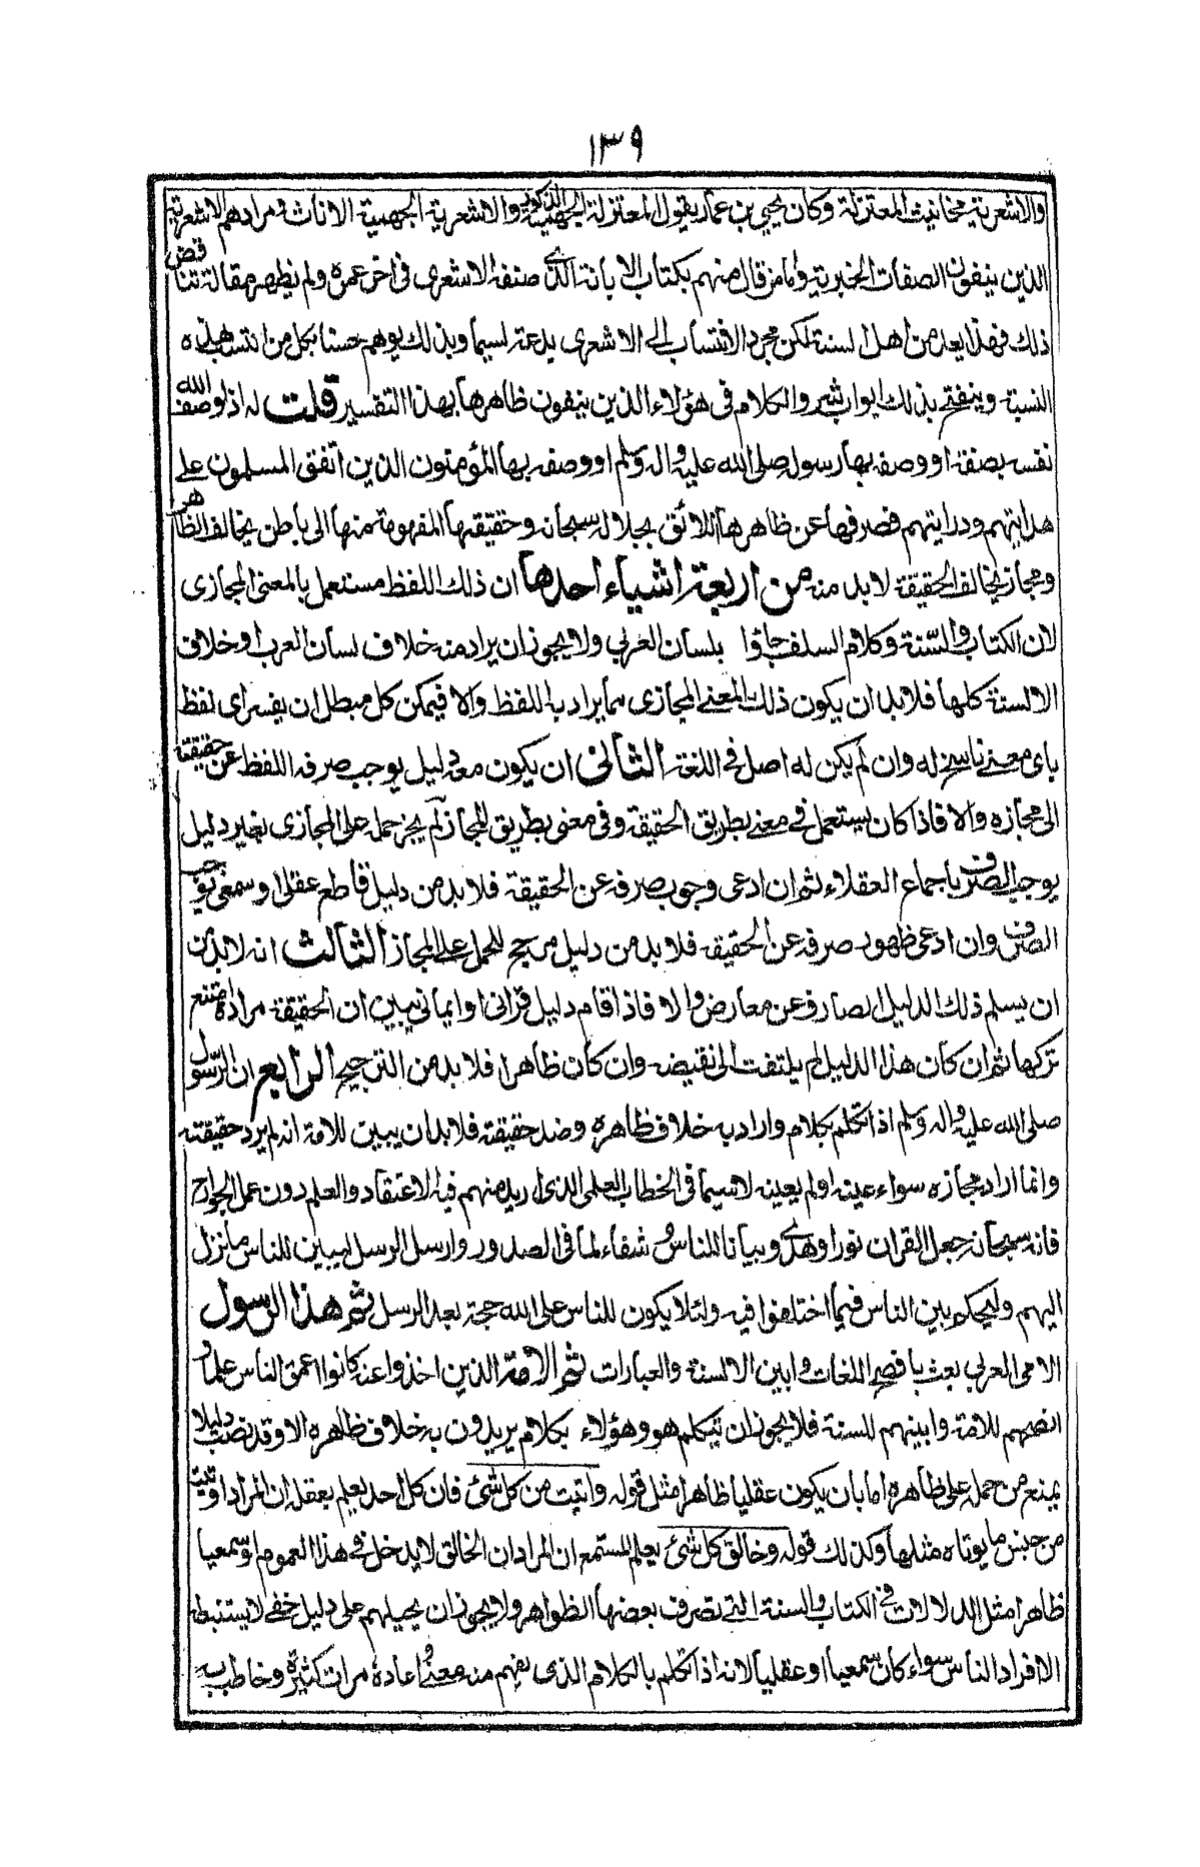 ١٣٩
والاشعرية مخانيث المعتزلة وكان يحيى بن عمار يقول المعتزلة الجهمية الذكور والاشعرية الجهمية الاناث ومرادهم الاشعرية
الذين ينفون الصفات الخبرية واما من قال منهم بكتاب الابانة الذى صنفه الاشعرى فى اخر عمره ولم يظهر مقالة تناقض
ذلك فهذا يعد من اهل السنة لكن مجرد الانتساب الى الاشعرى بدعة لاسيما وبذلك يوهم حسنا بكل من انتسب هذه
النسبة وينفتح بذلك ابواب شر والكلام فى هؤلاء الذين ينفون ظاهرها بهذا التفسير قلت له اذ لو وصف الله
نفسه بصفة او وصفه بها رسوله صلى الله عليه واله وسلم او وصفه بها المؤمنون الذين اتفق المسلمون على
هدايتهم ودرايتهم فصرفها عن ظاهرها اللائق بجلاله سبحانه وحقيقتها المفهومة منها الى باطن يخالف الظاهر
ومجاز يخالف الحقيقة لا بد منه من اربعة اشياء احدها ان ذلك اللفظ مستعمل بالمعنى المجازى
لان الكتاب والسنة وكلام السلف جاؤا بلسان العربي ولا يجوز ان يراد منه خلاف لسان العرب او خلاف
الالسنة كلها فلا بد ان يكون ذلك المعنى المجازى مما يراد باللفظ والا فيمكن كل مبطل ان يفسر اى لفظ
باى معنى ناسخ له وان لم يكن له اصل فى اللغة الثانى ان يكون معه دليل يوجب صرفه اللفظ عن حقيقته
الى مجازه والا فاذا كان يستعمل فى معنى بطريق الحقيقة وفى معنى بطريق المجاز لم يجز حمله على المجازى بغير دليل
يوجب الصرف باجماع العقلاء ثم ان ادعى وجوب صرفه عن الحقيقة فلا بد من دليل قاطع عقلى او سمعى يوجب
الصرف وان ادعى ظهور صرفه عن الحقيقة فلا بد من دليل مرجح للحمل على المجاز الثالث انه لا بد من
ان يسلم ذلك الدليل الصارف عن معارض والا فاذا قام دليل قرانى او ايمانى يبين ان الحقيقة مرادة امتنع
تركها ثم ان كان هذا الدليل لم يلتفت الى نقيضه وان كان ظاهرا فلا بد من الترجيح الرابع ان الرسول
صلى الله عليه واله وسلم اذا تكلم بكلام واراد به خلاف ظاهره وضد حقيقة فلا بد ان يبين للامة انه لم يرد حقيقته
وانما اراد مجازه سواء عينه او لم يعينه لاسيما فى الخطاب العلمى الذى اريد منهم فيه الاعتقاد والعلم دون عمل الجوارح
فانه سبحانه جعل القران نورا وهدى وبيانا للناس وشفاء لما فى الصدور وارسل الرسل ليبين للناس ما نزل
اليهم وليحكم بين الناس فيما اختلفوا فيه ولئلا يكون للناس على الله حجة بعد الرسل ثم هذا الرسول
الامى العربى بعث بافصح اللغات وابين الالسنة والعبارات ثم الامة الذين اخذوا عنه كانوا اعمق الناس علما و
انصحهم للامة وابينهم للسنة فلا يجوز ان يتكلم هو وهؤلاء بكلام يريدون به خلاف ظاهره الا وقد نصب دليلا
يمنع من حمله على ظاهره اما بان يكون عقليا ظاهرا مثل قوله واوتيت من كل شئ فان كل احد يعلم بعقله ان المراد اوتيت
من جنس ما يوتاه مثلها وكذلك قوله وخالق كل شئ يعلم المستمع ان المراد ان الخالق لا يدخل فى هذا العموم او سمعيا
ظاهرا مثل الدلالات فى الكتاب والسنة التى تصرف بعضها الظواهر ولا يجوز ان يحيلهم على دليل خفى لا يستنبطه
الا افراد الناس سواء كان سمعيا او عقليا لانه اذا تكلم بالكلام الذى يفهم منه معنى واعاده مرات كثيرة وخاطب به